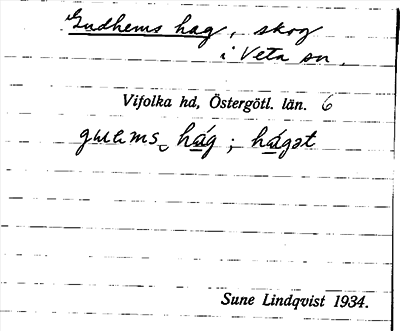 Gudhems hag, skog
i Veta sn.
Vifolka hd, Östergötl. län. 6
hág; hágət
Sune Lindqvist 1934.